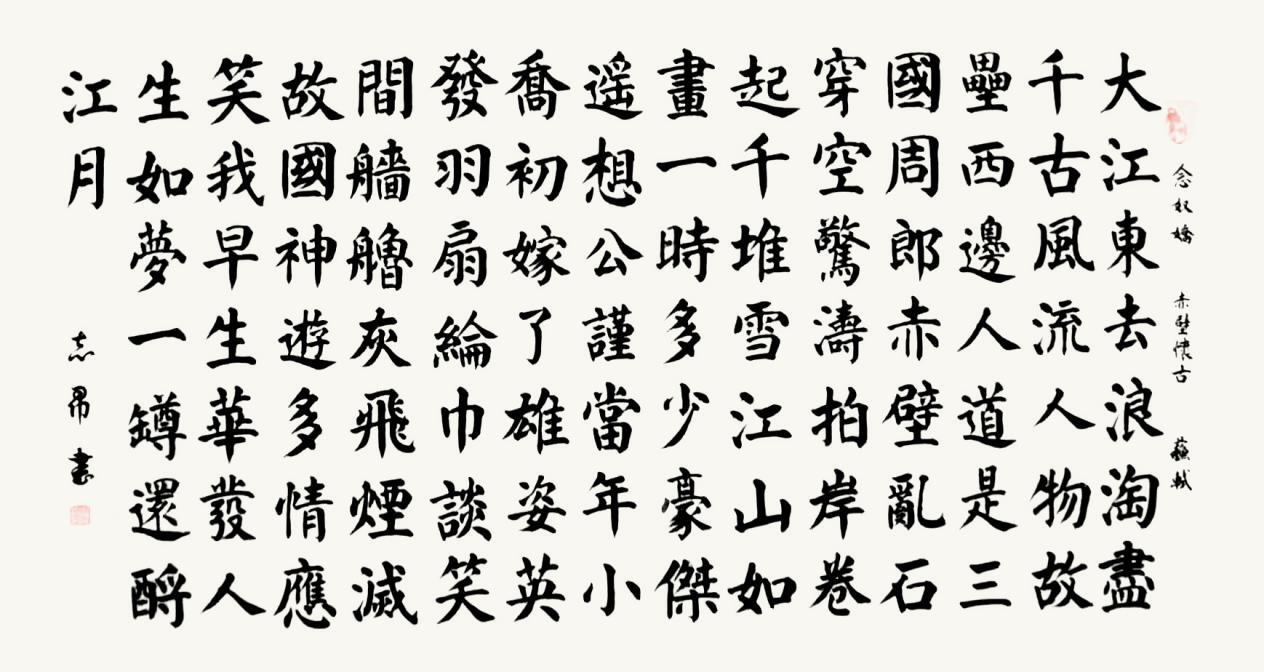 念奴嬌 赤壁懷古 蘇軾
大江東去浪淘盡
千古風流人物故
壘西邊人道是三
國周郎赤壁亂石
穿空驚濤拍岸卷
起千堆雪江山如
畫一時多少豪傑
遥想公謹當年小
喬初嫁了雄姿英
發羽扇綸巾談笑
間艢艣灰飛煙滅
故國神遊多情應
笑我早生華發人
生如夢一鐏還酹
江月
志昂書